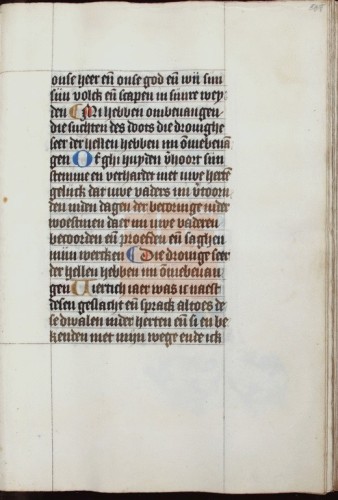 onse heer eñ onse god eñ wii siin
siin volck eñ scapen in siinre wey
den Mi hebben ombeuangen
die suchten des doots die drouighe
seer der hellen hebben mi ōmbeuā
gen Of ghi huyden v̄hoort siin
stemme en verharder niet uwe hertē
geluck dat uwe vaders mi v̄toorn
den inden daghen der becoringe inder
woestinen daer mi uwe vaderen
becoorden eñ proefden eñ saghen
miin wercken Die drouige seer
der hellen hebben mi ōmbeuan
gen Viertich iaer was ic naest
desen geslacht eñ sprack altoes de
se dwalen inder herten eñ si en be
kenden niet miin wege ende ick